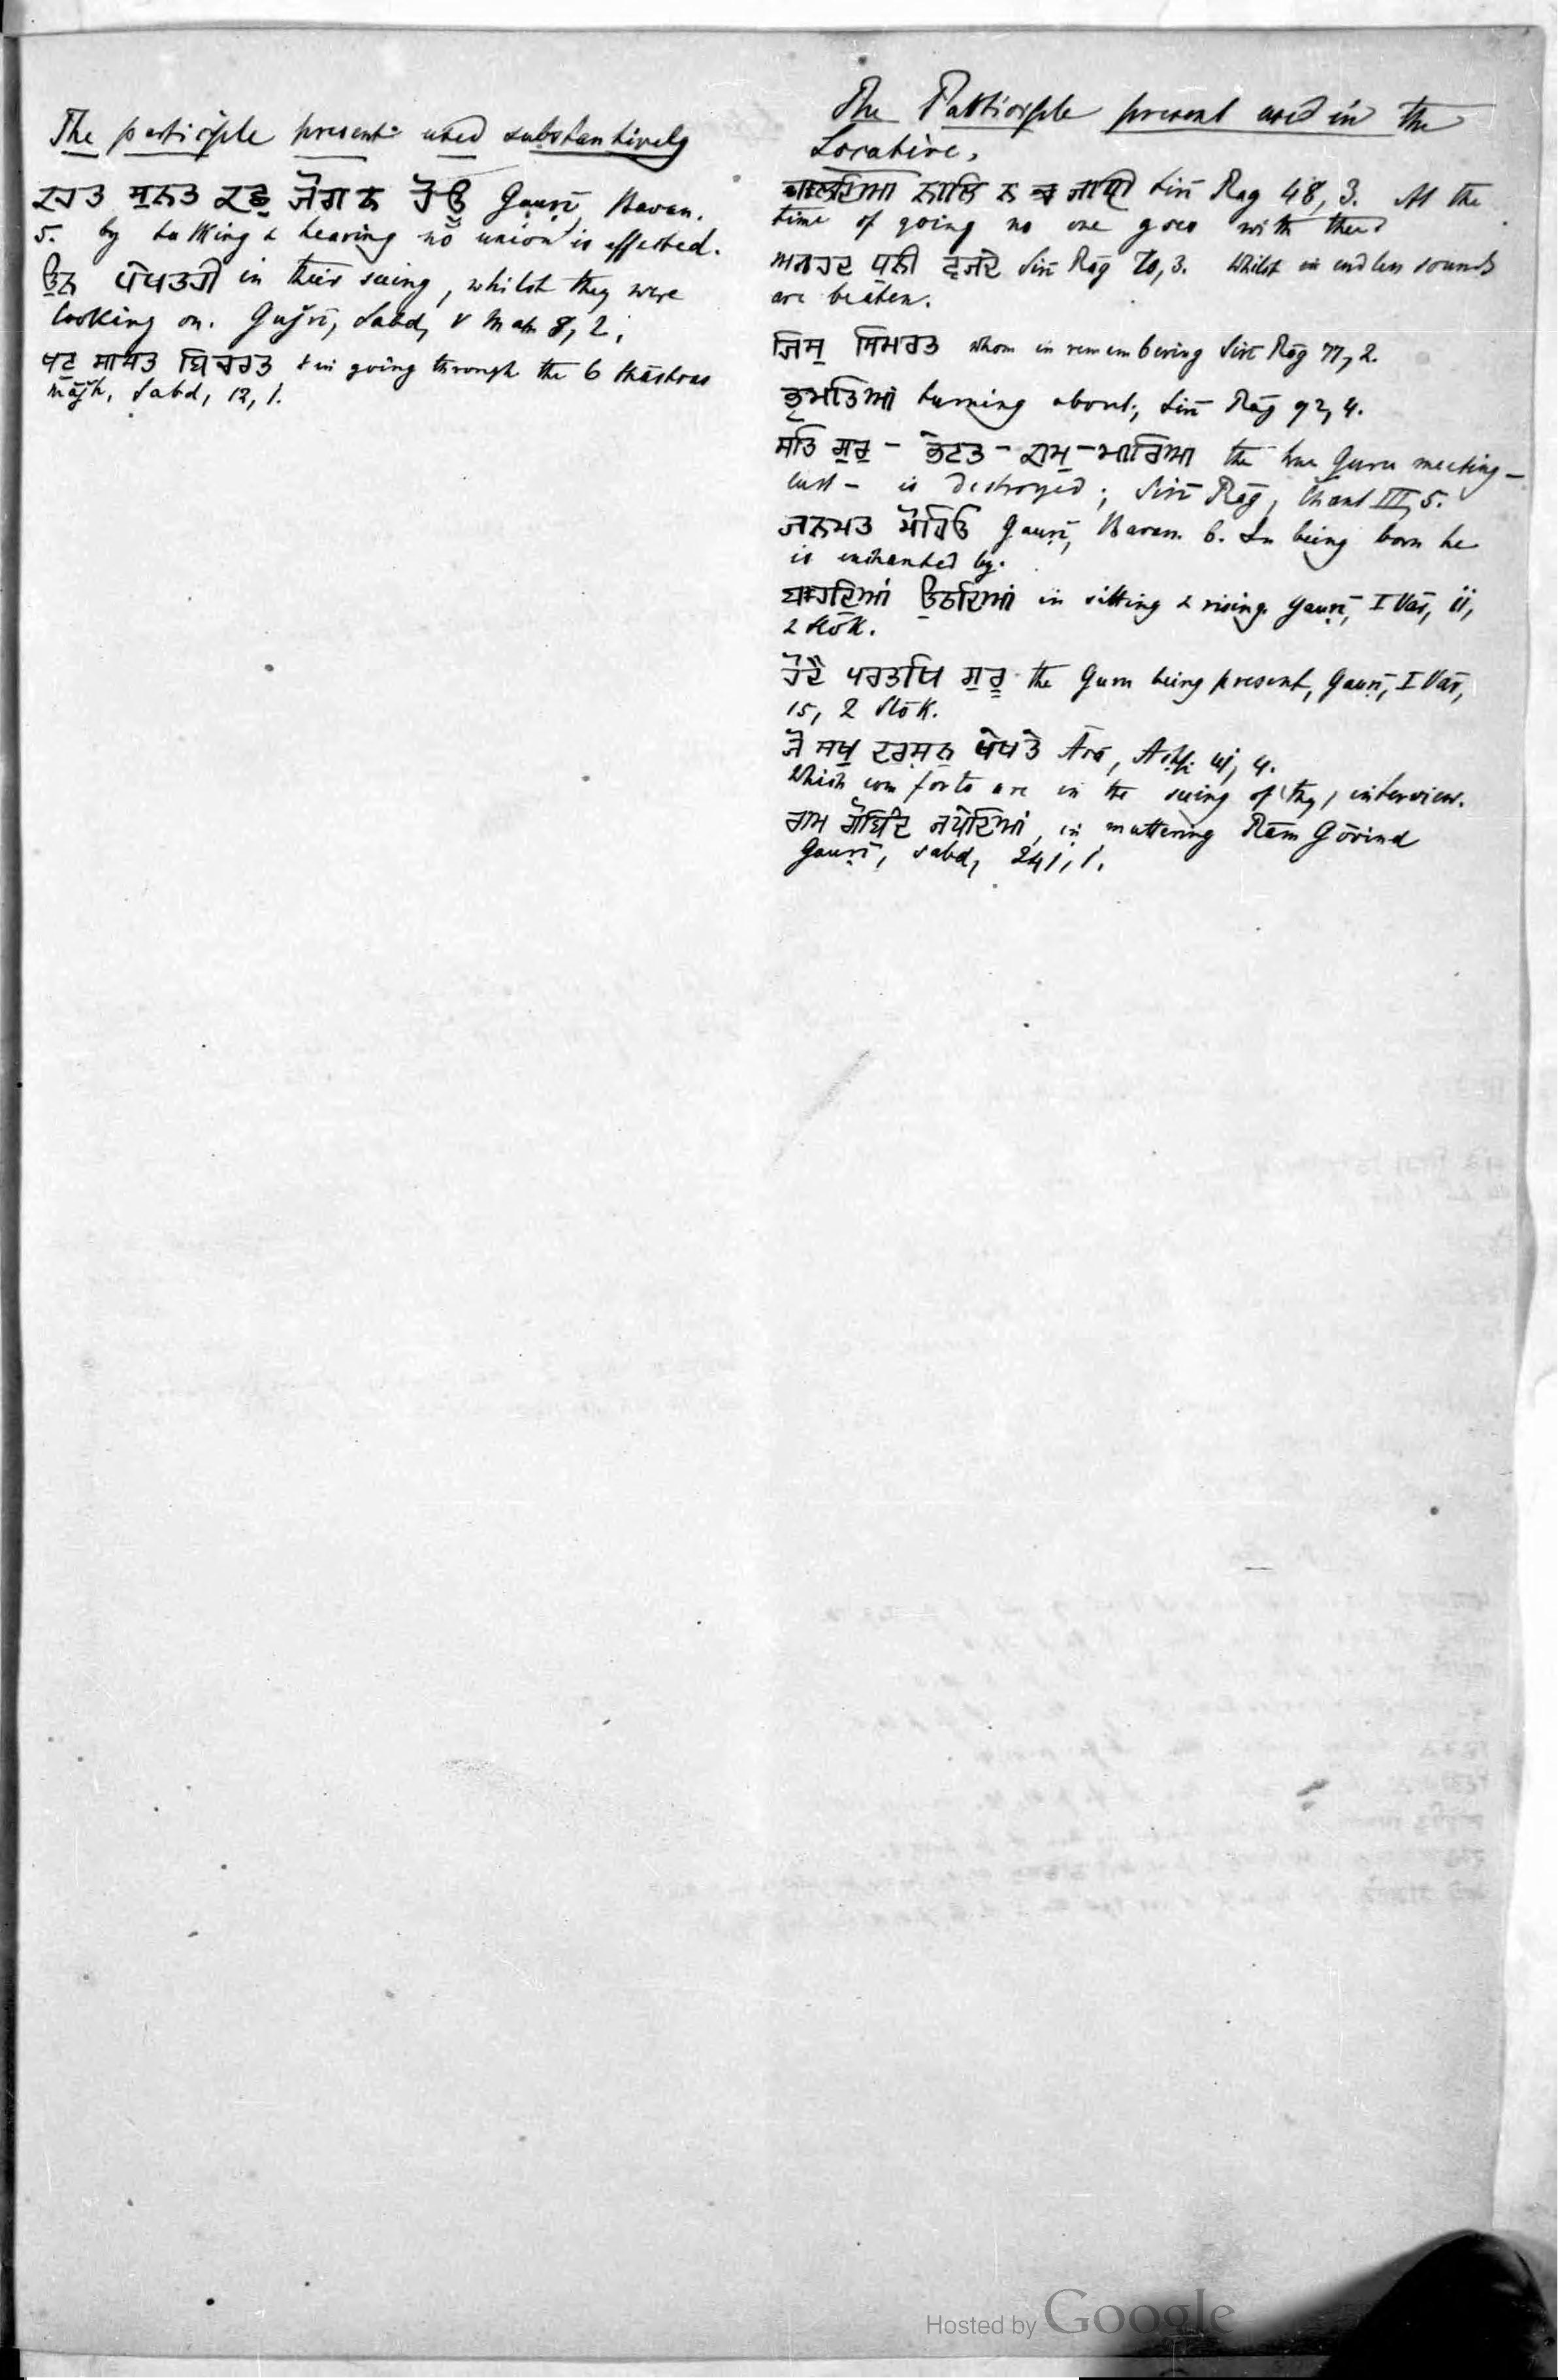 The participle present used substantively
ਕਹਤ ਸੁਨਤ ਕਛੁ ਜੋਗ ਨ ਹੋਊ Gauṛī, Bavan.
5. by talking & hearing no union is effected.
ਉਨ ਪੇਖਤਹੀ in their seeing, whilst they were
looking on. Gujrī, Sabd, V Mah 8, 2,
ਖਟੁ ਸਾਸਤ ਬਿਚਰਤ in going through the 6 Shāstras
Mājh, Sabd, 12, 1.
The Participle present used in the
Locative.
ਚਲਦਿਆ ਨਾਲਿ ਨ Sirī Rāg 48, 3. At the
time of going no one goes with thee
ਅਨਹਦ ਧੁਨੀ ਵਜਦੇ Sirī Rāg 70, 3. Whilst endless sounds
are beaten.
ਜਿਸੁ ਸਿਮਰਤ whom in remembering Sirī Rāg 77, 2.
ਭ੍ਰਮਤਿਆਂ turning about, Sirī Rāg 92, 4.
ਸਤਿ ਗੁਰੁ - ਭੇਟਤ - ਕਾਮੁ - ਮਾਰਿਆ the true Guru meeting -
lust - is destroyed; Sirī Rāg, Chant III, 5.
ਜਨਮਤ ਮੋਹਿਓ Gauṛī, Bavan 6. In being born he
is enchanted by.
ਬਹਦਿਆਂ ਉਠਦਿਆਂ in sitting & rising. Gauṛī, I Vār, ii,
2 Slōk.
ਹੋਦੈ ਪਰਤਖਿ ਗੁਰੂ the Guru being present, Gauṛī, I Vār,
15, 2 Slōk.
ਜੋ ਸੁਖੁ ਦਰਸਨੁ ਪੇਖਤੇ Āsā, 4.
Which comforts are in the seeing of (thy) interview.
ਰਾਮ ਗੋਬਿੰਦ ਜਪੇਦਿਆਂ, in muttering Rām Gōvind
Gauṛī, Sabd, 241, 1.
Hosted by Google